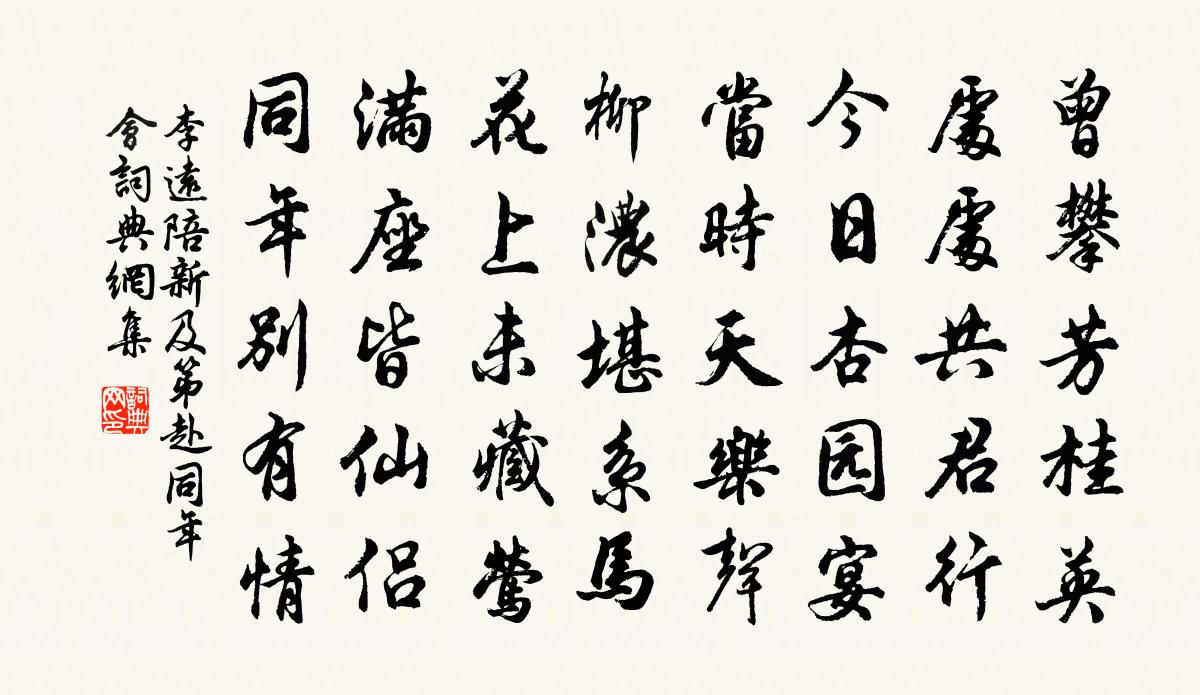 曾攀芳桂英
處處共君行
今日杏园宴
當時天樂聲
柳濃堪系馬
花上未藏鶯
滿座皆仙侶
同年別有情
李遠陪新及第赴同年
會詞典網集
詞典
网印